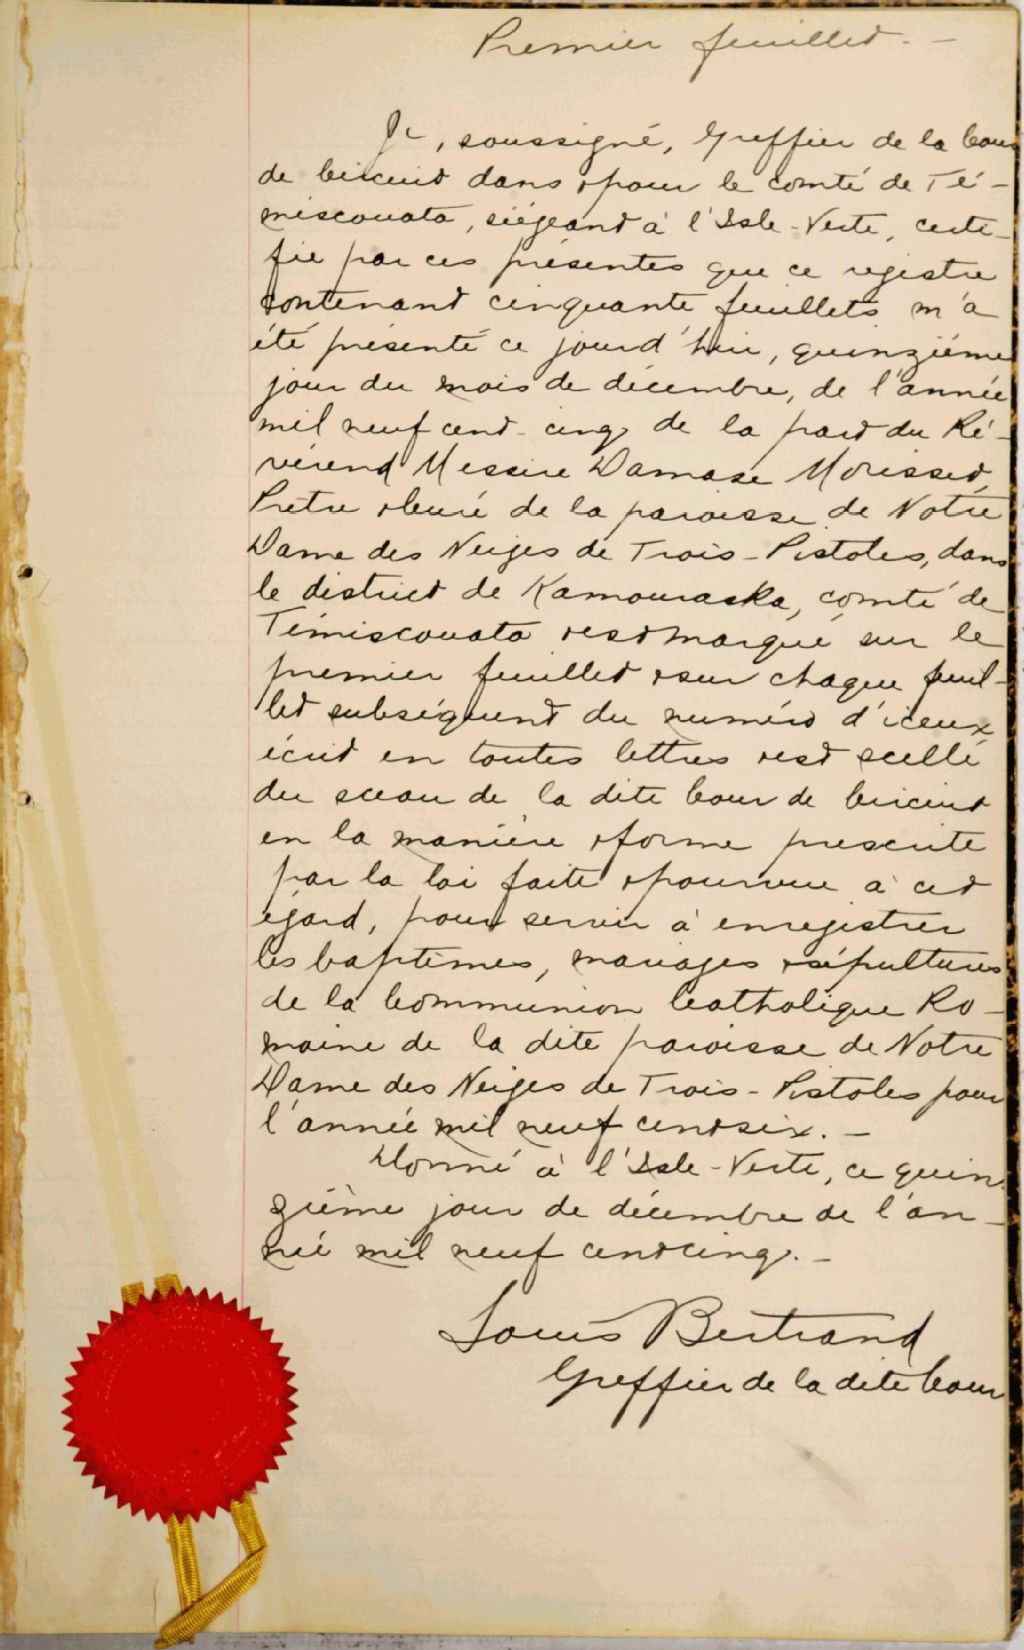 Premier feuillet. -
Je, soussigné, Greffier de la Cour
de Circuit dans & pour le comté de Té-
miscouata, siégeant à l'Isle-Verte, certi-
fie par ces présentes que ce registre
contenant cinquante feuillets m'a
été présenté ce jourd'hui, quinzième
jour du mois de décembre, de l'année
mil neuf cent-cinq de la part du Ré-
vérend Messire Damase Morisset,
Prêtre & Curé de la paroisse de Notre
Dame des Neiges de Trois-Pistoles, dans
le district de Kamouraska, comté de
Témiscouata & est marqué sur le
premier feuillet & sur chaque feuil-
let subséquent du numéro d'iceux
écrit en toutes lettres & est scellé
du sceau de la dite Cour de Circuit
en la manière & forme prescrite
par la loi faite & pourvue à cet
égard, pour servir à enregistrer
les baptêmes, mariages & sépultures
de la Communion Catholique Ro-
maine de la dite paroisse de Notre
Dame des Neiges de Trois-Pistoles pour
l'année mil neuf cent six. -
Donné à l'Isle-Verte, ce quin-
zième jour de décembre de l'an-
née mil neuf cent cinq. -
Louis Bertrand
Greffier de la dite Cour